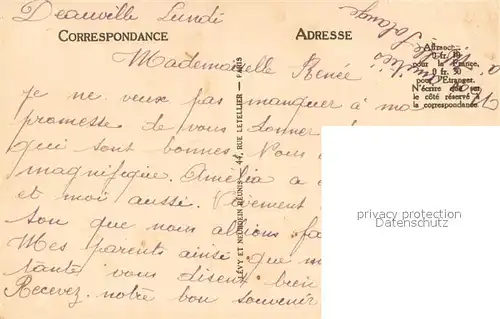 Deauville Lundi
CORRESPONDANCE
ADRESSE
Mademoiselle Renée
je ne veux pas manquer à ma
promesse de vous donner
qui sont bonnes. Nous
magnifique. Amélia a
et moi aussi.
son que nous allions
Mes parents ainsi que m
tante vous disent bien
Recevez notre bon souvenir
Solange
Affranc
0 fr. 10
pour la France,
0 fr. 30
pour l'Etranger.
N'écrire que sur
le côté réservé à
la correspondance
LÉVY ET NEURDEIN RÉUNIS, 44, RUE LETELLIER — PARIS
privacy protection
Datenschutz